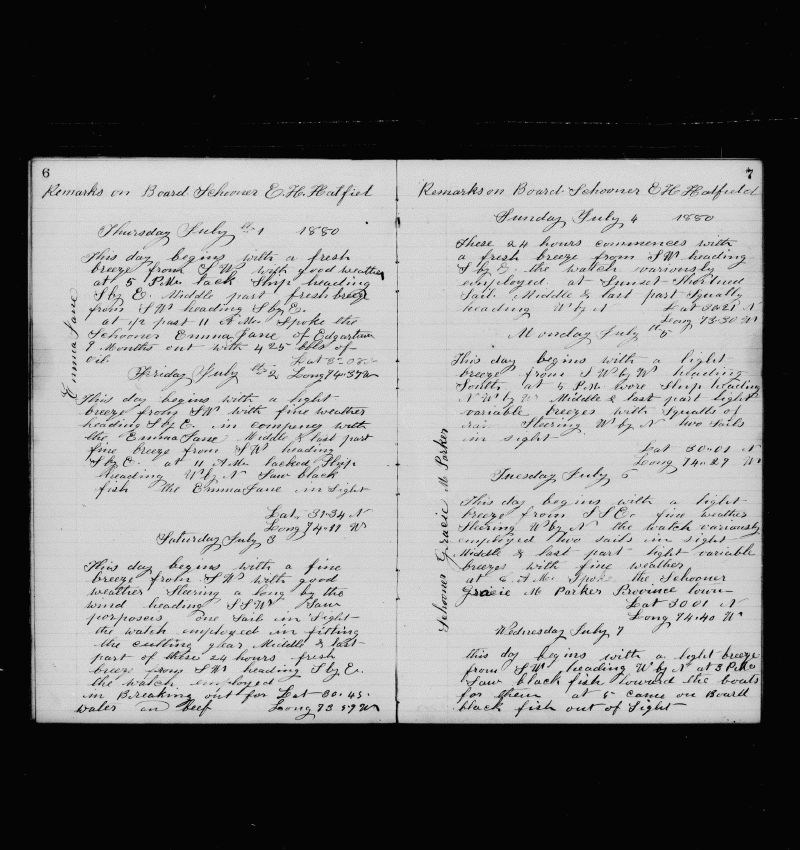 6
Remarks on Board Schooner E. H. Hatfiel
Thursday July th 1 1880
This day begins with a fresh
breeze from SW with good weather
at 5 P.M. tack Ship heading
S by E. Middle part fresh breeze
from SW heading S by E.
at 1/2 past 11 A.M. Spoke the
Schooner Emma Jane of Edgartown
9 Months out with 425 bbls of
oil
Long 74.37 W
Emma Jane
Friday July th 2
This day begins with a light
breeze from SW with fine weather
heading S by E. in company with
the Emma Jane Middle & last part
fine breeze from SW heading
S by E. at 11 A.M. tacked Ship
heading W by N Saw black
fish the Emma Jane in Sight
Lat. 31-34 N
Long 74-11 W
Saturday July 3
This day begins with a fine
breeze from SW with good
weather Stering a long by the
wind heading SSW Saw
porposes one Sail in Sight
the watch employed in fitting
the cutting gear Middle & last
part of these 24 hours fresh
breeze from SW heading S by E.
the watch employed
in Breaking out for Lat 30.45.
water and beef Long 73 57 W
7
Remarks on Board Schooner E H Hatfield
Sunday July 4 1880
These 24 hours commences with
a fresh breeze from SW heading
S by E. the watch variously
employed at Sunset Shortned
Sail Middle & last part Squally
heading W by N Lat 30-21 N
Long 73-30 W
Monday July th 5
This day begins with a light
breeze from SW by W heading
South, at 5 P.M. wore Ship heading
NW by W Middle & last part light
variable breezes with Squalls of
rain Stering W by N two Sails
in sight
Lat 30-01 N
Long 74-29 W
Tuesday July 6
This day begins with a light
breeze from SSE. fine weather
Stering W by N the watch variously
employed two sails in sight
Middle & last part light variable
breezes with fine weather
at A.M. Spoke the Schooner
Gracie M Parker Province town
Lat 30 01 N
Long 74.40 W
Schooner Gracie M Parker
Wednesday July 7
this day begins with a light breeze
from SW heading W by N at 3 P.M.
Saw black fish lowerd the boats
for them at 5 came on Board
black fish out of Sight